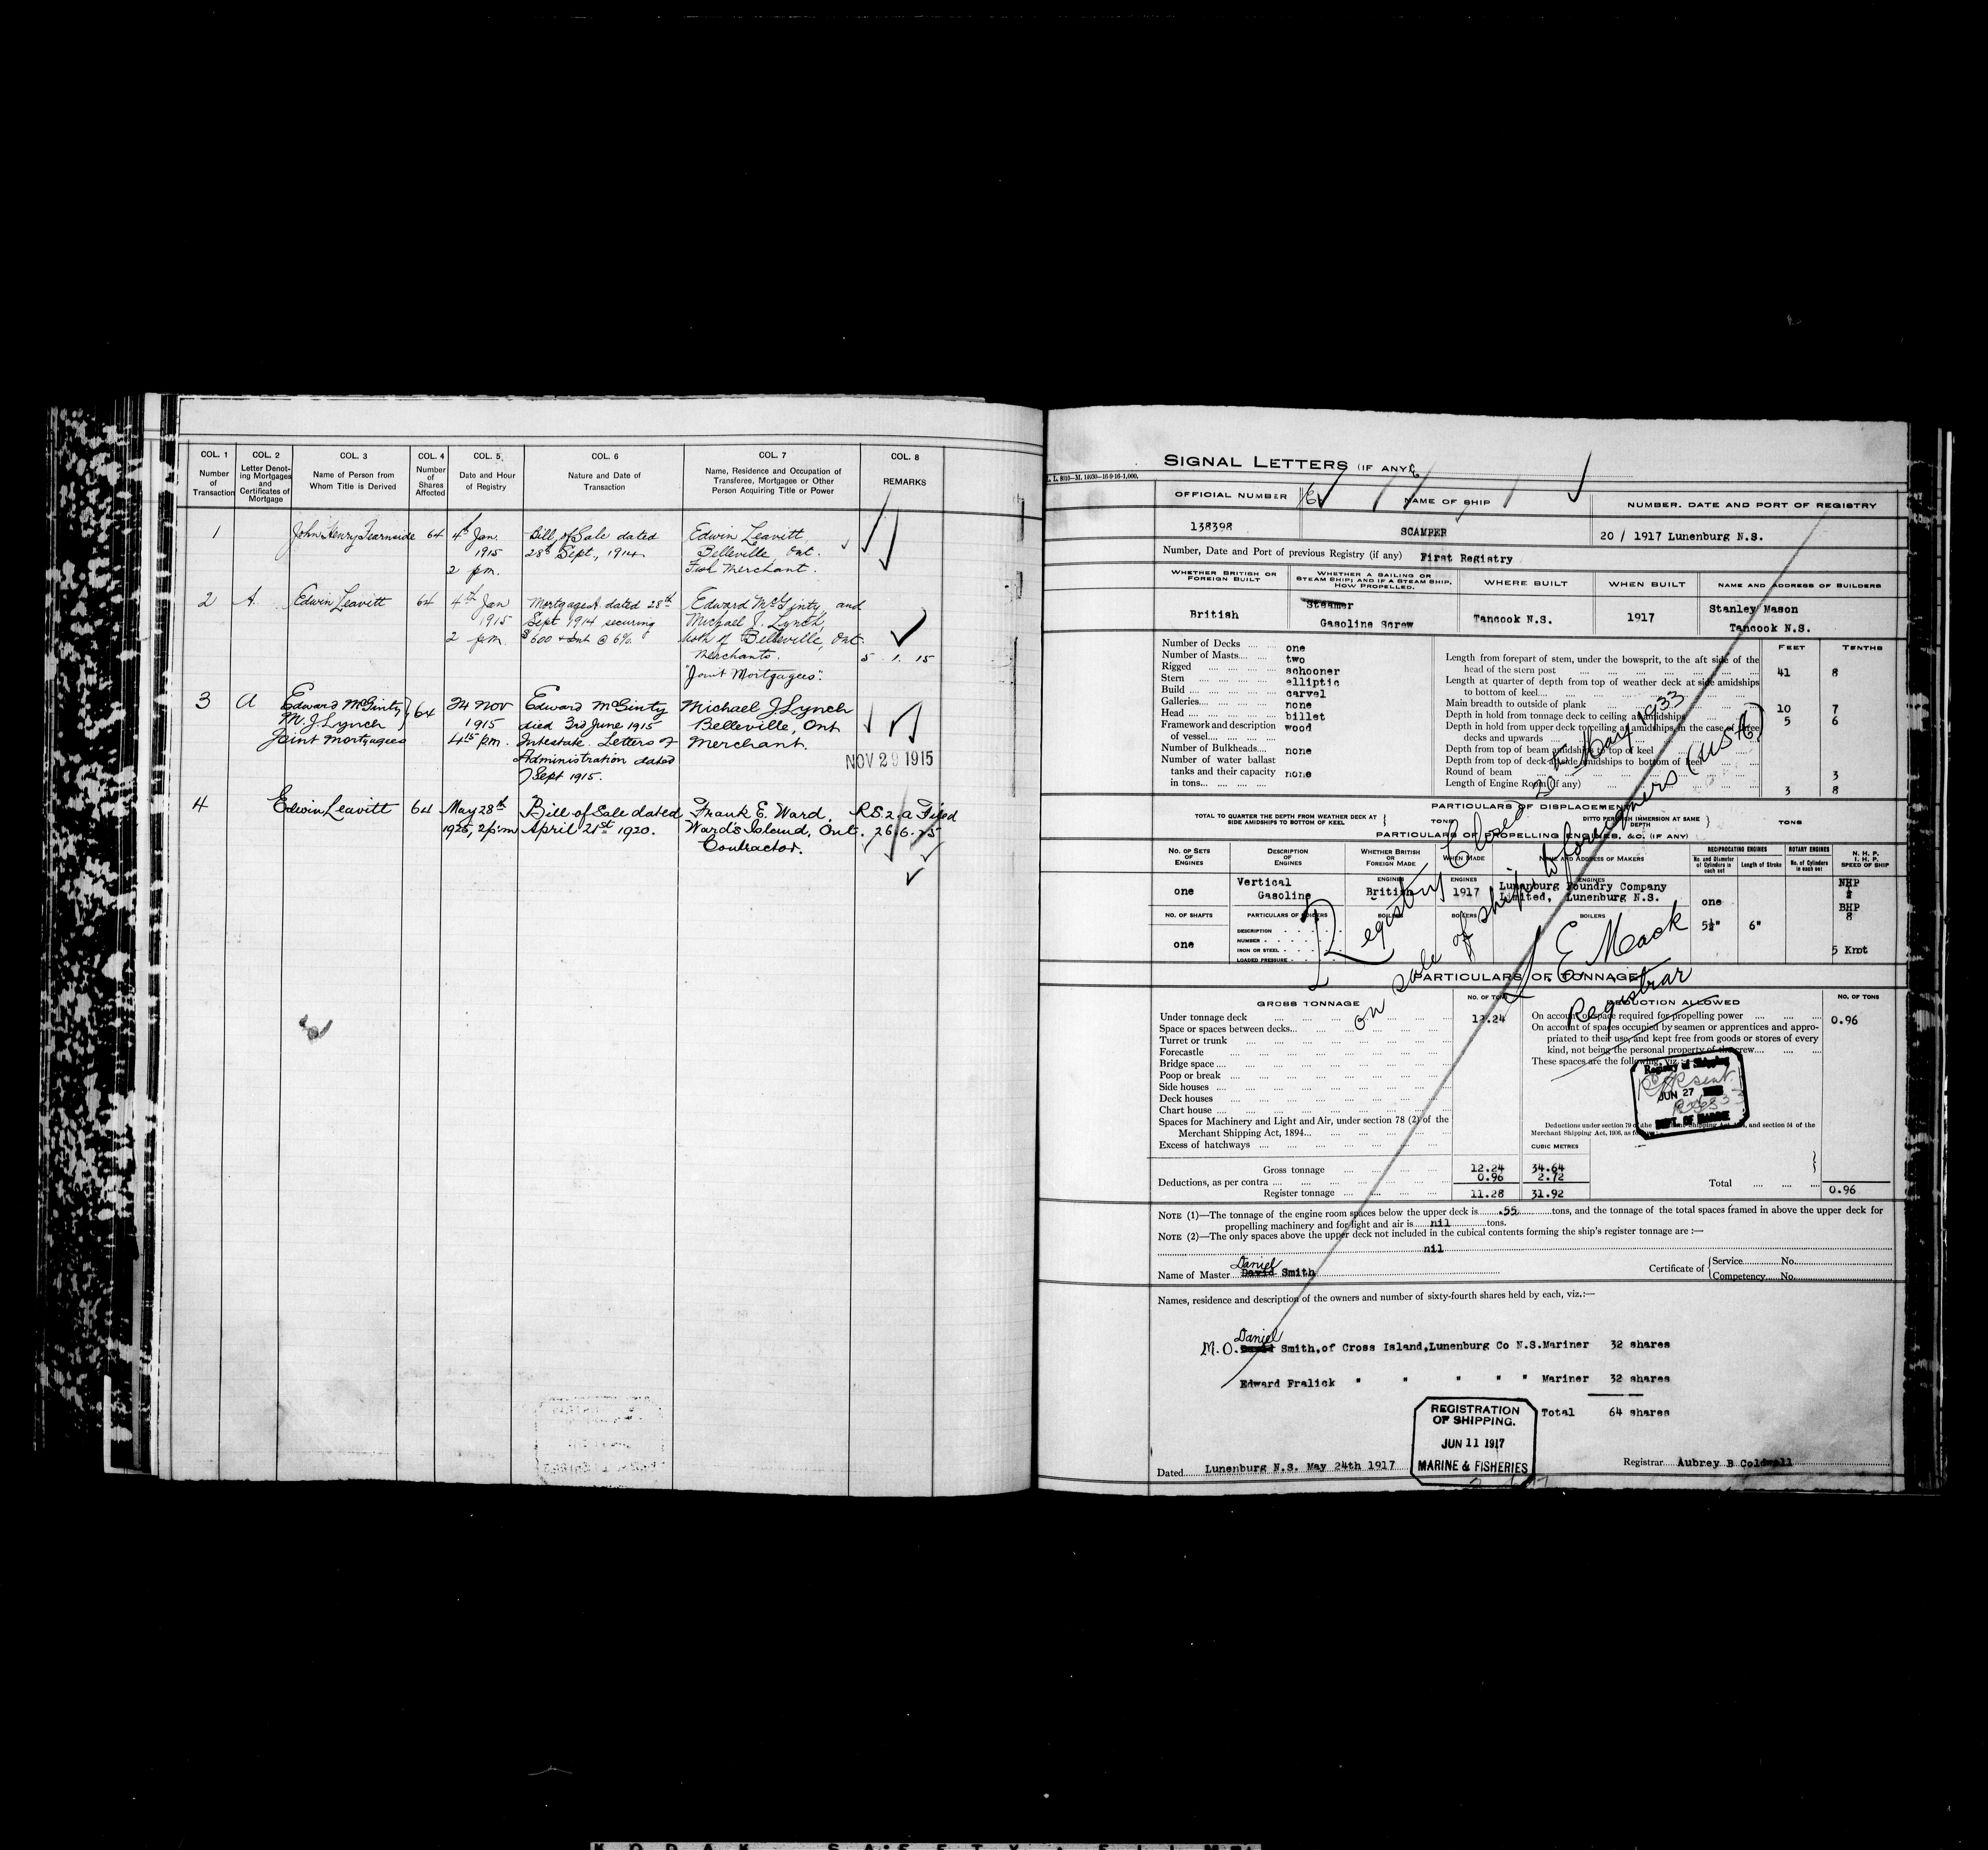 COL. 1 COL. 2 COL. 3 COL. 4 COL. 5. COL. 6 COL. 7 COL. 8
Number of Transaction
Letter Denoting Mortgages and Certificates of Mortgage
Name of Person from Whom Title is Derived
Number of Shares Affected
Date and Hour of Registry
Nature and Date of Transaction
Name, Residence and Occupation of Transferee, Mortgagee or Other Person Acquiring Title or Power
REMARKS
1 John Henry Fearnside 64 4th Jan. Bill of Sale dated Edwin Leavitt,
1915 28th Sept., 1914. Belleville, Ont.
2 p.m. Fuel Merchant.
2 A. Edwin Leavitt 64 4th Jan Mortgage A. dated 28th Edward McGinty, and
1915 Sept 1914 securing Michael J. Lynch,
2 p.m. $600 + Int @ 6% both of Belleville, Ont.
Merchants. 5. 1. 15
"Joint Mortgagees".
3 A Edward McGinty } 64 24 Nov Edward McGinty Michael J Lynch
M. J. Lynch 1915 died 3rd June 1915 Belleville, Ont
Joint Mortgagees 4.15 p.m. Intestate. Letters of Merchant.
Administration dated NOV 29 1915
7 Sept 1915.
4 Edwin Leavitt 64 May 28th Bill of Sale dated Frank E. Ward, R.S. 2.a Filed
1925, 2 p.m. April 21st 1920. Ward's Island, Ont. 26.6.25
Contractor.
SIGNAL LETTERS (IF ANY)
OFFICIAL NUMBER NAME OF SHIP NUMBER, DATE AND PORT OF REGISTRY
138398 SCAMPER 20 / 1917 Lunenburg N.S.
Number, Date and Port of previous Registry (if any) First Registry
WHETHER BRITISH OR FOREIGN BUILT
WHETHER A SAILING OR STEAM SHIP; AND IF A STEAM SHIP, HOW PROPELLED.
WHERE BUILT WHEN BUILT NAME AND ADDRESS OF BUILDERS
British Steamer Gasoline Screw Tancook N.S. 1917 Stanley Mason
Tancook N.S.
FEET TENTHS
Number of Decks one
Number of Masts two
Rigged schooner
Stern elliptic
Build carvel
Galleries none
Head billet
Framework and description of vessel wood
Number of Bulkheads none
Number of water ballast tanks and their capacity in tons none
Length from forepart of stem, under the bowsprit, to the aft side of the
head of the stern post 41 8
Length at quarter of depth from top of weather deck at side amidships
to bottom of keel
Main breadth to outside of plank 10 7
Depth in hold from tonnage deck to ceiling at amidships 5 6
Depth in hold from upper deck to ceiling at amidships in the case of three
decks and upwards
Depth from top of beam amidships to top of keel
Depth from top of deck at side amidships to bottom of keel
Round of beam 3
Length of Engine Room (if any) 3 8
PARTICULARS OF DISPLACEMENT
TOTAL TO QUARTER THE DEPTH FROM WEATHER DECK AT SIDE AMIDSHIPS TO BOTTOM OF KEEL } TONS
DITTO PER INCH IMMERSION AT SAME DEPTH } TONS
PARTICULARS OF PROPELLING ENGINES, &C. (IF ANY)
NO. OF SETS OF ENGINES
DESCRIPTION OF ENGINES
WHETHER BRITISH OR FOREIGN MADE
WHEN MADE
NAME AND ADDRESS OF MAKERS
RECIPROCATING ENGINES
No. and Diameter of Cylinders in each set
Length of Stroke
ROTARY ENGINES
No. of Cylinders in each set
N. H. P. I. H. P. SPEED OF SHIP
ENGINES ENGINES ENGINES
one Vertical Gasoline British 1917 Lunenburg Foundry Company
Limited, Lunenburg N.S. one
NHP
BHP
8
NO. OF SHAFTS PARTICULARS OF BOILERS BOILERS BOILERS BOILERS
5½" 6"
one
DESCRIPTION
NUMBER
IRON OR STEEL
LOADED PRESSURE
5 Knot
Registry Closed 20th May 1933
on sale of ship to foreigners (USA)
L E. Mack
Registrar
PARTICULARS OF TONNAGE
GROSS TONNAGE NO. OF TONS DEDUCTION ALLOWED NO. OF TONS
Under tonnage deck 12.24
Space or spaces between decks
Turret or trunk
Forecastle
Bridge space
Poop or break
Side houses
Deck houses
Chart house
Spaces for Machinery and Light and Air, under section 78 (2) of the
Merchant Shipping Act, 1894
Excess of hatchways
On account of space required for propelling power 0.96
On account of spaces occupied by seamen or apprentices and appro-
priated to their use, and kept free from goods or stores of every
kind, not being the personal property of the crew
These spaces are the following, viz.:
Registry of Shipping
JUN 27
DEPT. OF MARINE
CUBIC METRES
Gross tonnage 12.24 34.64
Deductions, as per contra 0.96 2.72
Register tonnage 11.28 31.92
Total 0.96
NOTE (1)—The tonnage of the engine room spaces below the upper deck is .55 tons, and the tonnage of the total spaces framed in above the upper deck for
propelling machinery and for light and air is nil tons.
NOTE (2)—The only spaces above the upper deck not included in the cubical contents forming the ship's register tonnage are :—
nil
Name of Master Daniel David Smith
Certificate of { Service No.
Competency No.
Names, residence and description of the owners and number of sixty-fourth shares held by each, viz.:—
M. O. Daniel David Smith, of Cross Island, Lunenburg Co N.S. Mariner 32 shares
Edward Fralick " " " " " Mariner 32 shares
Total 64 shares
REGISTRATION
OF SHIPPING.
JUN 11 1917
MARINE & FISHERIES
Dated Lunenburg N.S. May 24th 1917
Registrar Aubrey B Coldwell
KODAK SAFETY FILM